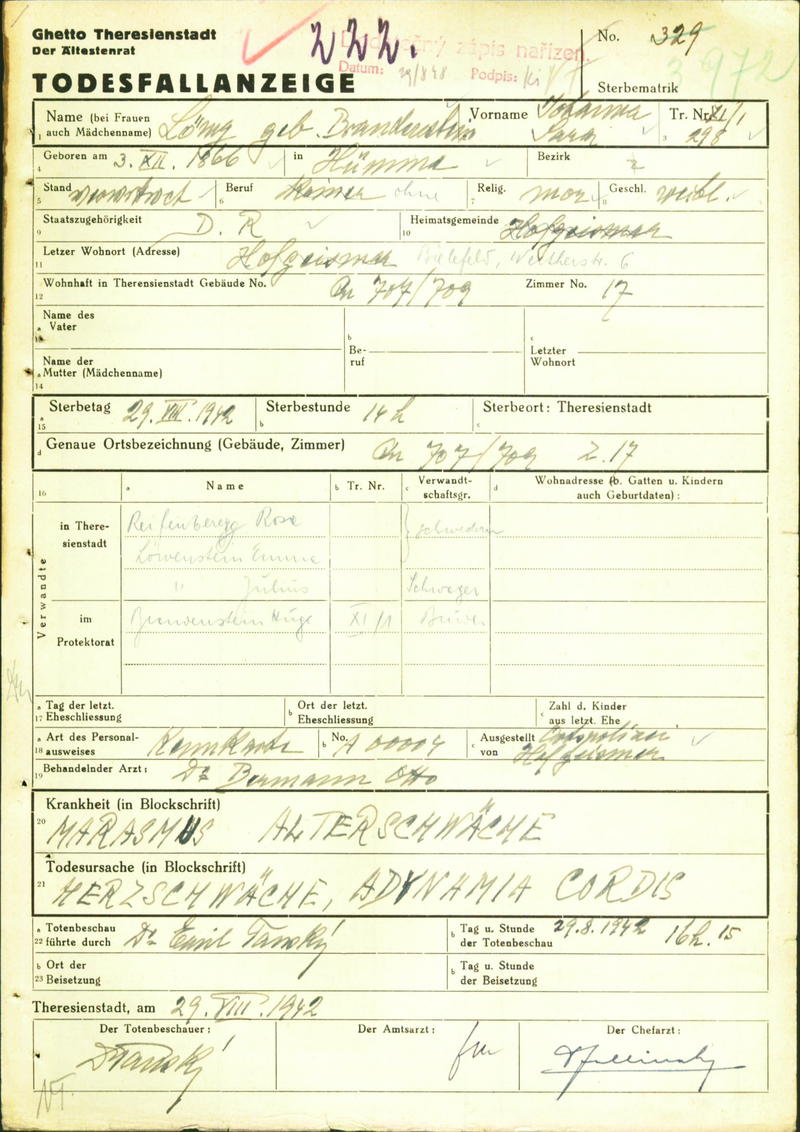 Ghetto Theresienstadt
Der Ältestenrat
222.
zápis nařízen
Datum: Podpis:
No. 329
3972
TODESFALLANZEIGE
Sterbematrik
Name (bei Frauen auch Mädchenname) geb.
Vorname Johanna Sara
Tr. Nr. XI/1
1 3 298
Geboren am 3. XII. 1866 in Hümme Bezirk
4
Stand verwitwet Beruf keiner ohne Relig. mos. Geschl. weibl.
5 6 7 8
Staatszugehörigkeit D. R Heimatsgemeinde Hofgeismar
9 10
Letzer Wohnort (Adresse) Hofgeismar Bielefeld, 6
11
Wohnhaft in Therensienstadt Gebäude No. 707/709 Zimmer No. 17
12
Name des Vater
a b Be-ruf c Letzter Wohnort
Name der Mutter (Mädchenname)
14
Sterbetag 29. VIII. 1942 Sterbestunde 14 h Sterbeort: Theresienstadt
15 a b c
d Genaue Ortsbezeichnung (Gebäude, Zimmer) 707/709 Z. 17
16 a Name b Tr. Nr. c Verwandt-schaftsgr. d Wohnadresse (b. Gatten u. Kindern auch Geburtdaten):
Verwandte
in There-sienstadt
Rosa
Löwenstein Emma
" Julius Schwager
im Protektorat
XI/1
a Tag der letzt. 17 Eheschliessung b Ort der letzt. Eheschliessung c Zahl d. Kinder aus letzt. Ehe
a Art des Personal- 18 ausweises Kennkarte b No. A 00004 c Ausgestellt von Ortspolizei Hofgeismar
19 Behandelnder Arzt: Dr Bermann Otto
Krankheit (in Blockschrift)
20 MARASMUS ALTERSCHWÄCHE
Todesursache (in Blockschrift)
21 HERZSCHWÄCHE, ADYNAMIA CORDIS
a Totenbeschau 22 führte durch Dr Emil b Tag u. Stunde der Totenbeschau 29.8.1942 16h. 15
b Ort der 23 Beisetzung b Tag u. Stunde der Beisetzung
Theresienstadt, am 29. VIII. 1942
Der Totenbeschauer: Der Amtsarzt: Der Chefarzt: